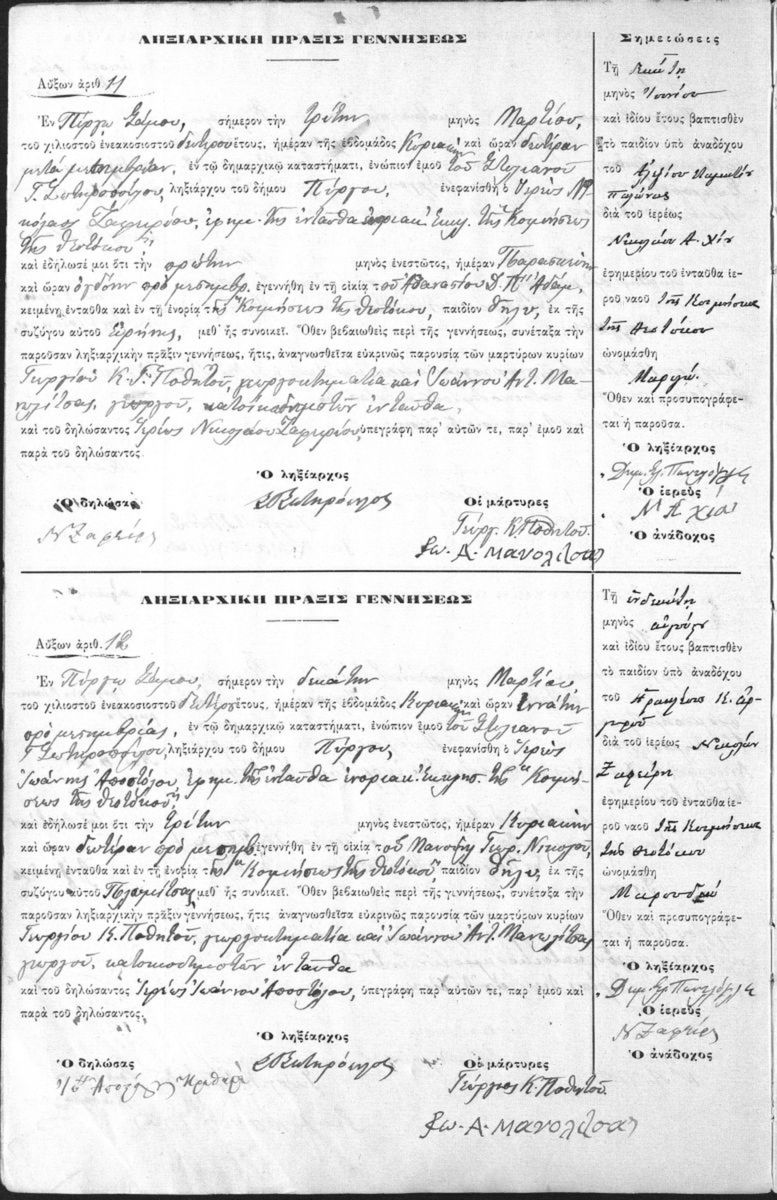 ΛΗΞΙΑΡΧΙΚΗ ΠΡΑΞΙΣ ΓΕΝΝΗΣΕΩΣ
Αὔξων ἀριθ. 11
Ἐν Πύργῳ Σάμου, σήμερον τὴν τρίτην μηνὸς Μαρτίου,
τοῦ χιλιοστοῦ ἐνεακοσιοστοῦ δευτέρου ἔτους, ἡμέραν τῆς ἑβδομάδος Κυριακὴν καὶ ὥραν δευτέραν
μετὰ μεσημβρίαν, ἐν τῷ δημαρχικῷ καταστήματι, ἐνώπιον ἐμοῦ τοῦ Στυλιανοῦ
Γ. Σωτηροπούλου, ληξιάρχου τοῦ δήμου Πύργου, ἐνεφανίσθη ὁ Ἱερεὺς Νι-
κόλαος Ζαφειρίου, ἐφημ. τῆς ἐνταῦθα ἐνοριακ. Ἐκκλ. τῆς "Κοιμήσεως
τῆς Θεοτόκου"
καὶ ἐδήλωσέ μοι ὅτι τὴν πρώτην μηνὸς ἐνεστῶτος, ἡμέραν Παρασκευὴν
καὶ ὥραν ὀγδόην πρὸ μεσημβρ. ἐγεννήθη ἐν τῇ οἰκίᾳ τοῦ Ἀθανασίου Ἀδάμ,
κειμένῃ ἐνταῦθα καὶ ἐν τῇ ἐνορίᾳ τῆς "Κοιμήσεως τῆς Θεοτόκου, παιδίον θῆλυ, ἐκ τῆς
συζύγου αὐτοῦ Εἰρήνης, μεθ' ἧς συνοικεῖ. Ὅθεν βεβαιωθεὶς περὶ τῆς γεννήσεως, συνέταξα τὴν
παροῦσαν ληξιαρχικὴν πρᾶξιν γεννήσεως, ἥτις, ἀναγνωσθεῖσα εὐκρινῶς παρουσίᾳ τῶν μαρτύρων κυρίων
Γεωργίου Κ. Ποθητοῦ, γεωργοκτηματία καὶ Ἰωάννου Ἀντ. Μα-
νωλίτσας, γεωργοῦ, κατοίκων δημοτῶν ἐνταῦθα,
καὶ τοῦ δηλώσαντος Ἱερέως Νικολάου Ζαφειρίου, ὑπεγράφη παρ' αὐτῶν τε, παρ' ἐμοῦ καὶ
παρὰ τοῦ δηλώσαντος
Ὁ ληξίαρχος
Σ Σωτηρόπουλος
Ὁ δηλώσας
Ν Ζαφείρης
Οἱ μάρτυρες
Γεώργ. Κ Ποθητοῦ.
Ιω. Α. Μανολιτσας
Σημειώσεις
Τῇ δεκάτῃ
μηνὸς Ἰουνίου
καὶ ἰδίου ἔτους βαπτισθὲν
τὸ παιδίον ὑπὸ ἀναδόχου
τοῦ
διὰ τοῦ ἱερέως
Νικολάου Α. Χίου
ἐφημερίου τοῦ ἐνταῦθα ἱε-
ροῦ ναοῦ τῆς Κοιμήσεως
τῆς Θεοτόκου
ὠνομάσθη
Μαριγώ.
Ὅθεν καὶ προσυπογράφε-
ται ἡ παροῦσα.
Ὁ ληξίαρχος
Ὁ ἱερεὺς
Ν Α Χιου
Ὁ ἀνάδοχος
ΛΗΞΙΑΡΧΙΚΗ ΠΡΑΞΙΣ ΓΕΝΝΗΣΕΩΣ
Αὔξων ἀριθ. 12
Ἐν Πύργῳ Σάμου, σήμερον τὴν δεκάτην μηνὸς Μαρτίου
τοῦ χιλιοστοῦ ἐνεακοσιοστοῦ δευτέρου ἔτους, ἡμέραν τῆς ἑβδομάδος Κυριακὴν καὶ ὥραν ἐννάτην
πρὸ μεσημβρίας, ἐν τῷ δημαρχικῷ καταστήματι, ἐνώπιον ἐμοῦ τοῦ Στυλιανοῦ
Γ Σωτηροπούλου, ληξιάρχου τοῦ δήμου Πύργου, ἐνεφανίσθη ὁ Ἱερεὺς
Ἰωάννης Ἀποστόλου, ἐφημ. τῆς ἐνταῦθα ἐνοριακ. ἐκκλησ. τῆς "Κοιμή-
σεως τῆς Θεοτόκου"
καὶ ἐδήλωσέ μοι ὅτι τὴν τρίτην μηνὸς ἐνεστῶτος, ἡμέραν Κυριακὴν
καὶ ὥραν δευτέραν πρὸ μεσημβ. ἐγεννήθη ἐν τῇ οἰκίᾳ τοῦ Μανουὴλ Γεωρ. Νικολάου,
κειμένῃ ἐνταῦθα καὶ ἐν τῇ ἐνορίᾳ τῆς "Κοιμήσεως τῆς Θεοτόκου", παιδίον θῆλυ, ἐκ τῆς
συζύγου αὐτοῦ μεθ' ἧς συνοικεῖ. Ὅθεν βεβαιωθεὶς περὶ τῆς γεννήσεως, συνέταξα τὴν
παροῦσαν ληξιαρχικὴν πρᾶξιν γεννήσεως, ἥτις ἀναγνωσθεῖσα εὐκρινῶς παρουσίᾳ τῶν μαρτύρων κυρίων
Γεωργίου Κ. Ποθητοῦ, γεωργοκτηματία καὶ Ἰωάννου Ἀντ. Μανωλίτσας
γεωργοῦ, κατοίκων δημοτῶν ἐνταῦθα
καὶ τοῦ δηλώσαντος Ἱερέως Ἰωάννου Ἀποστόλου, ὑπεγράφη παρ' αὐτῶν τε, παρ' ἐμοῦ καὶ
παρὰ τοῦ δηλώσαντος.
Ὁ ληξίαρχος
Σ Σωτηρόπουλος
Ὁ δηλώσας
Οἱ μάρτυρες
Γεώργιος Κ. Ποθητοῦ.
Ιω. Α. Μανολιτσας
Τῇ ἑνδεκάτῃ
μηνὸς αὐγούστου
καὶ ἰδίου ἔτους βαπτισθὲν
τὸ παιδίον ὑπὸ ἀναδόχου
τοῦ
διὰ τοῦ ἱερέως Νικολάου
Ζαφείρη
ἐφημερίου τοῦ ἐνταῦθα ἱε-
ροῦ ναοῦ τῆς Κοιμήσεως
τῆς Θεοτόκου
ὠνομάσθη
Μαρουδιώ
Ὅθεν καὶ προσυπογράφε-
ται ἡ παροῦσα.
Ὁ ληξίαρχος
Ὁ ἱερεὺς
Ν Ζαφείρης
Ὁ ἀνάδοχος